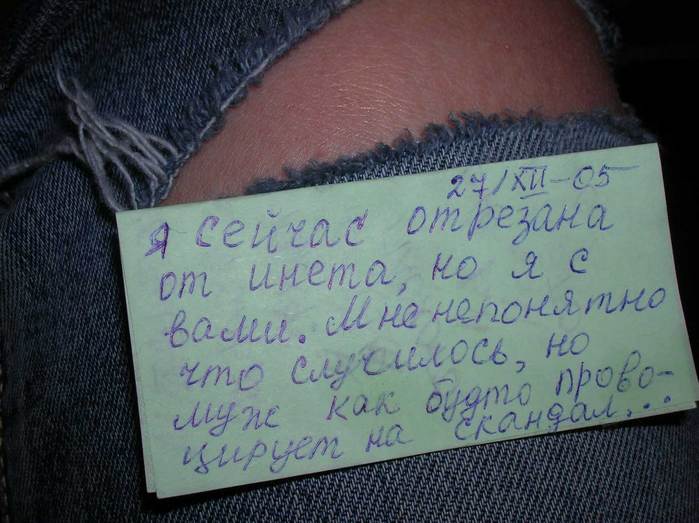 27/XII-05
Я сейчас отрезана
от инета, но я с
вами. Мне непонятно
что случилось, но
муж как будто прово-
цирует на скандал...